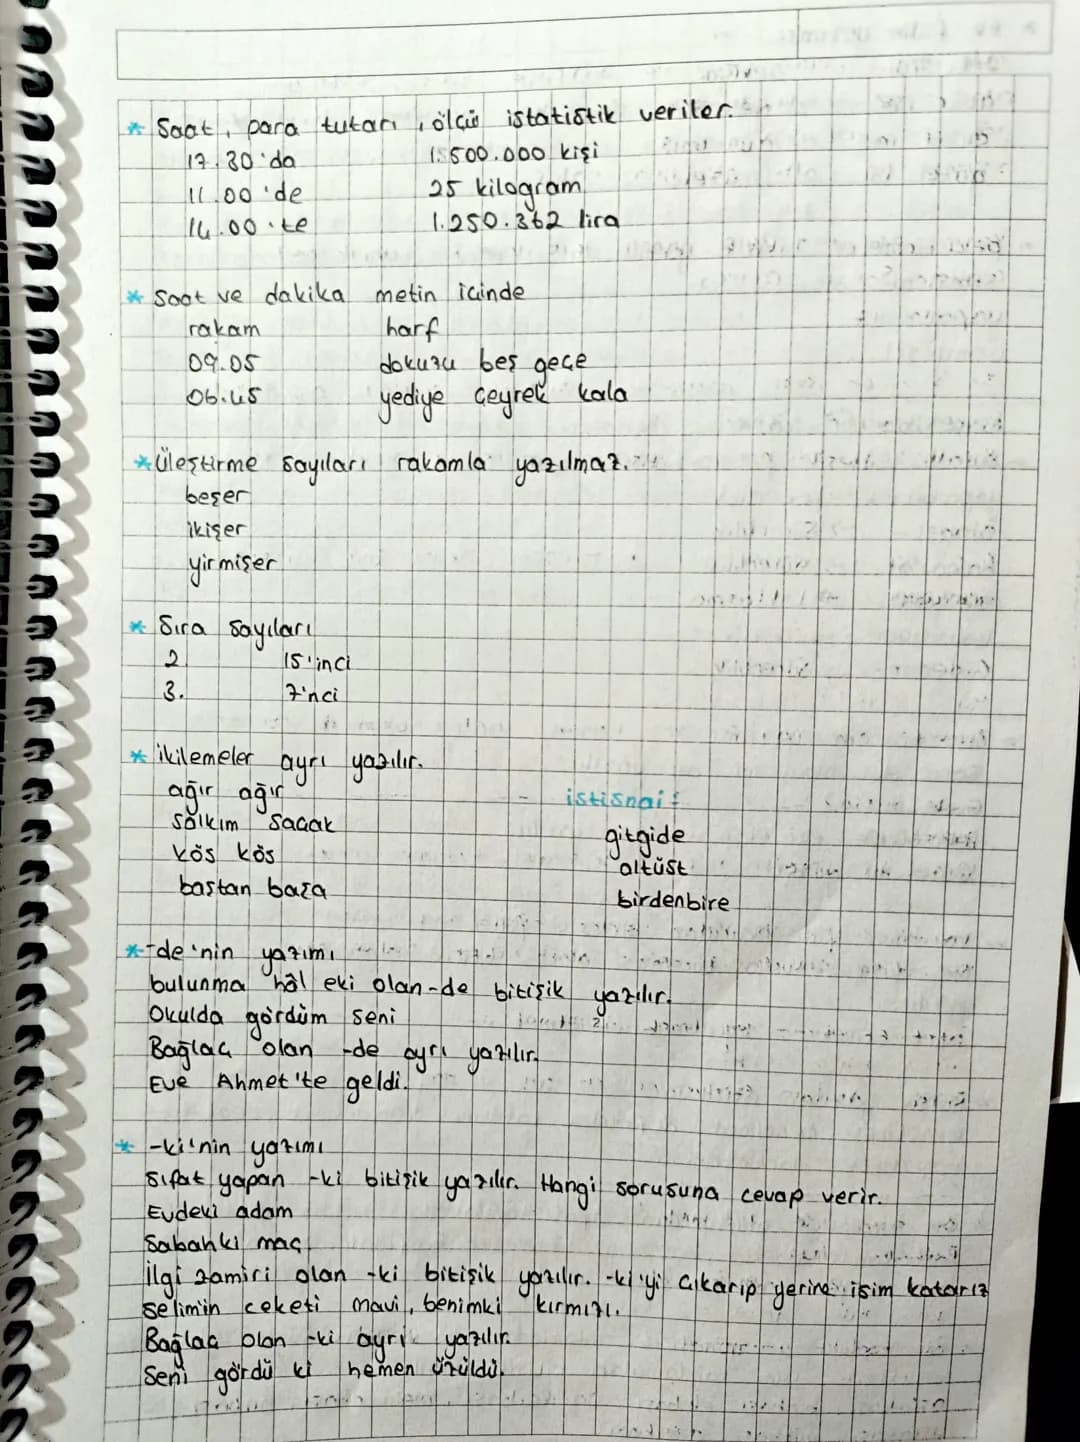 * Saat, para tutarı, ölçü istatistik veriler.
17.30'da 1.500.000 kişi
11.00'de 25 kilogram
14.00'te 1.250.362 lira
* Saat ve dakika metin içinde
rakam harf
09.05 dokuzu beş geçe
06.45 yediye çeyrek kala
* Üleştirme sayıları rakamla yazılmaz.
beşer
ikişer
yirmişer
* Sıra sayıları
2. 15'inci
3. 7'nci
* ikilemeler ayrı yazılır.
ağır ağır istisnai:
salkım saçak gitgide
kös kös altüst
baştan başa birdenbire
* -de'nin yazımı
bulunma hâl eki olan -de bitişik yazılır.
Okulda gördüm seni
Bağlaç olan -de ayrı yazılır.
Eve Ahmet'te geldi.
* -ki'nin yazımı
Sıfat yapan -ki bitişik yazılır. Hangi sorusuna cevap verir.
Evdeki adam
Sabahki maç
İlgi zamiri olan -ki bitişik yazılır. -ki'yi çıkarıp yerine isim katarız
selimin ceketi mavi, benimki kırmızı.
Bağlaç olan -ki ayrı yazılır.
Seni gördü ki hemen üzüldü.